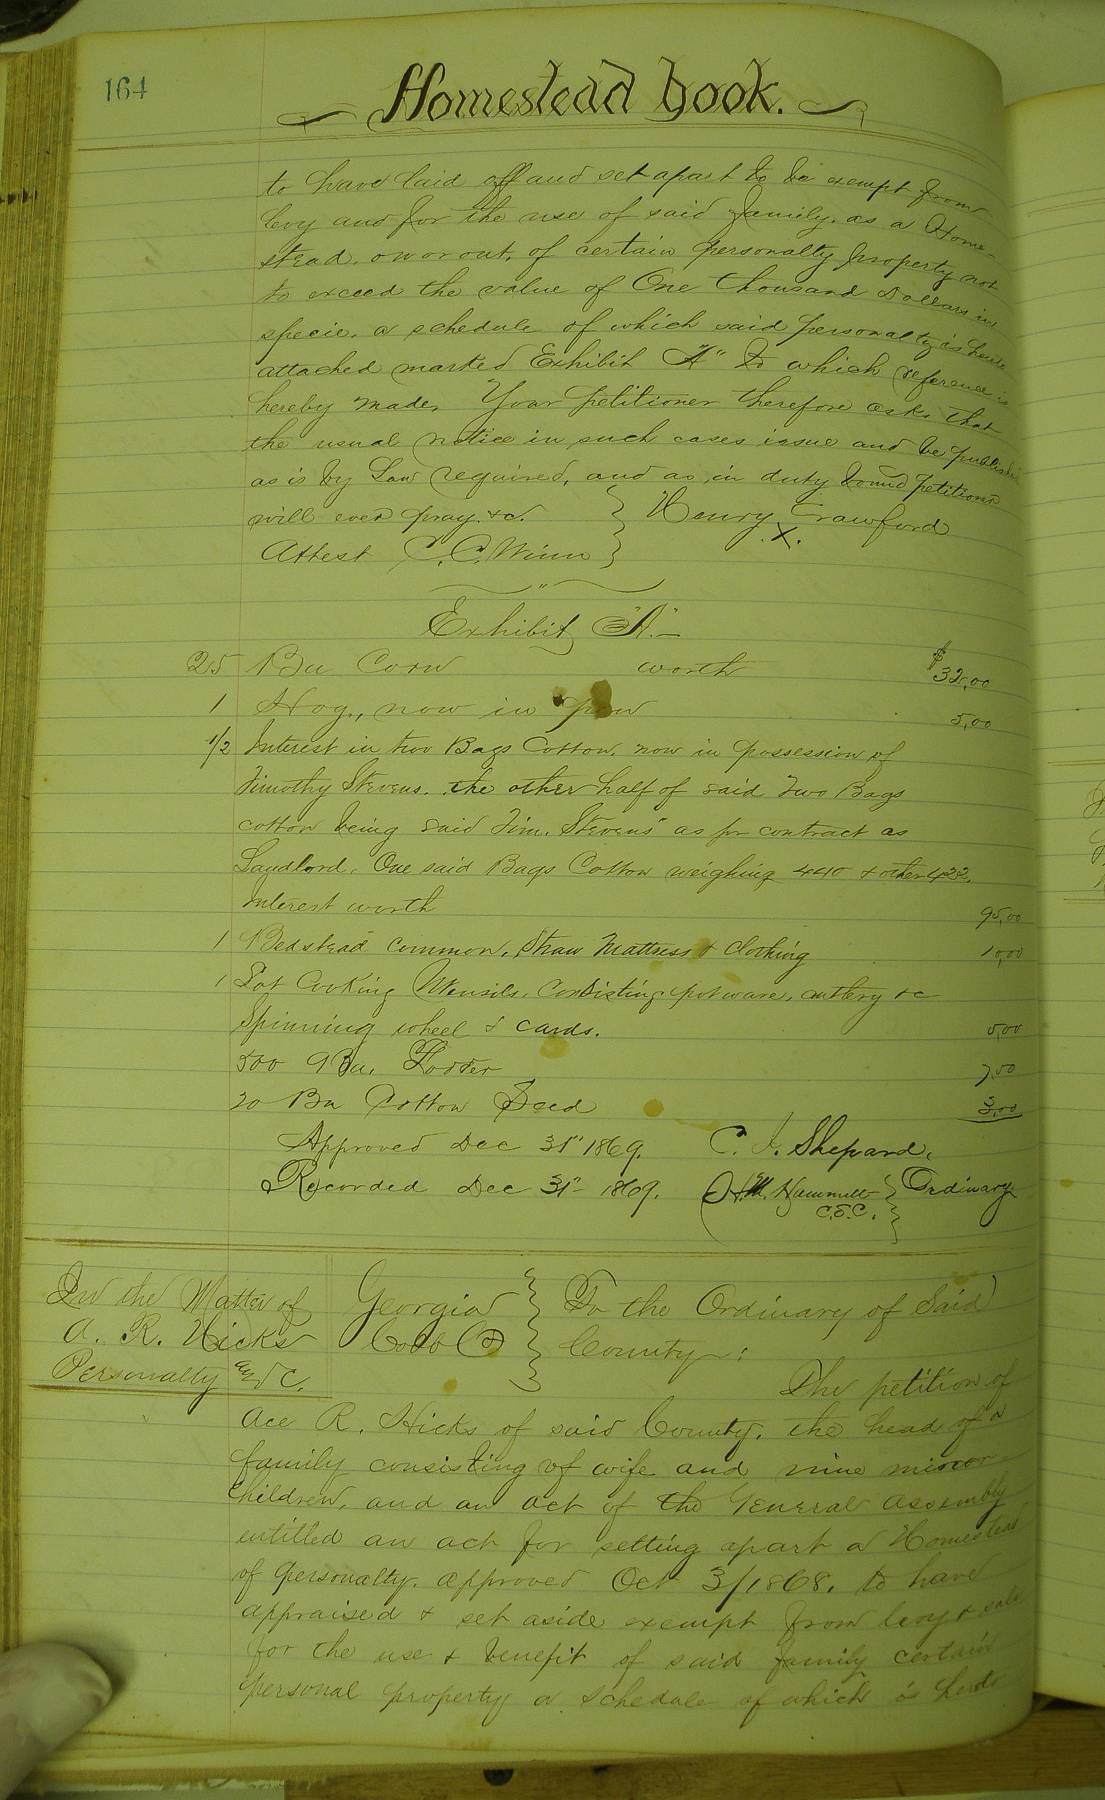 164
Homestead book.
to have laid off and set apart to be exempt from
levy and for the use of said family, as a Home-
stead, on or out, of certain personalty property not
to exceed the value of One thousand dollars in
specie, a schedule of which said personalty is hereto
attached marked Exhibit "A" to which reference is
hereby made, Your petitioner therefore asks that
the usual notice in such cases issue and be published
as is by Law required, and as in duty bound petitioner
will ever pray &c. Henry Crawford
Attest C. C. Winn X.
Exhibit "A"
25 Bu Corn worth $32,00
1 Hog, now in pen 5,00
1/2 Interest in two Bags Cotton, now in possession of
Timothy Stevens. the other half of said Two Bags
cotton being said Tim. Stevens" as pr contract as
Landlord. One said Bags Cotton weighing 440 & other 422.
Interest worth 95,00
1 Bedstead common, Straw Mattress & Clothing 10,00
1 Lot Cooking Utensils, Consisting potware, cutlery &c
Spinning wheel & cards. 5,00
500 Bu. Fodder 7.50
20 Bu Cotton Seed 3,00
Approved Dec 31" 1869. C. J. Shepard,
Recorded Dec 31" 1869. H.M. Hammett Ordinary
C.S.C.
In the Matter of Georgia To the Ordinary of Said
A. R. Hicks Cobb Co County:
Personalty &C. The petition of
Ace R. Hicks of said County, the head of a
family consisting of wife and nine minor
Children, and an act of the General Assembly
entitled an act for setting apart a Homestead
of personalty. approved Oct 3/1868. to have
appraised & set aside exempt from levy & sale
for the use & benefit of said family certain
personal property a schedule of which is hereto